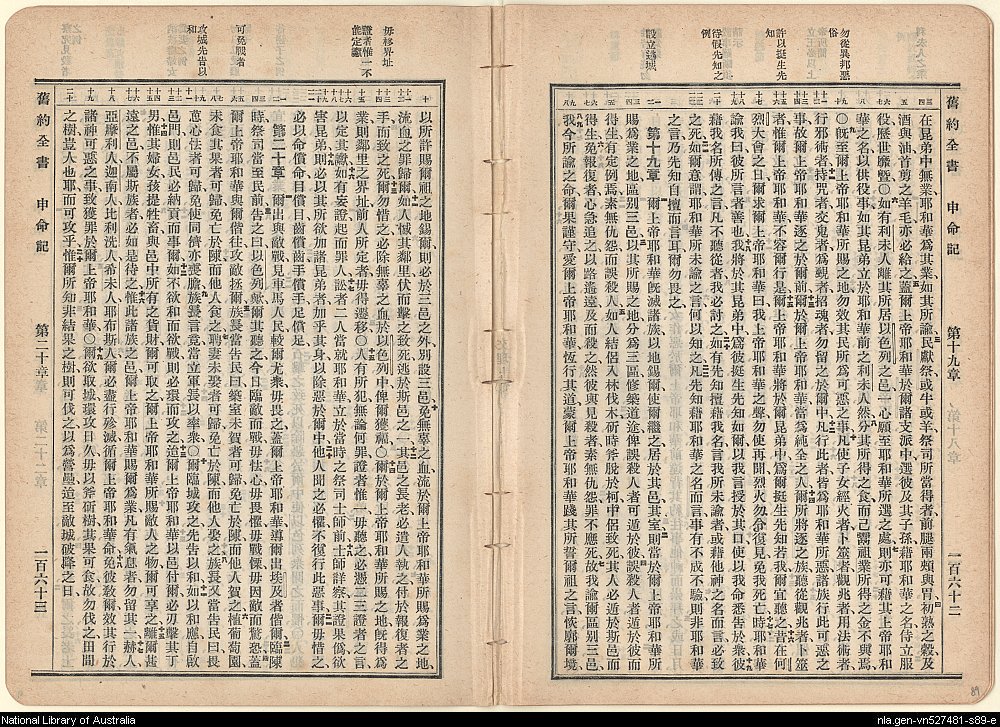 舊約全書 申命記 第十九章 一百六十二
勿從異邦惡俗
許以挺生先知
待假先知之例
設立逃城
在昆弟中無業耶和華爲其業如其所諭民獻祭或牛或羊祭司所當得者前腿兩頰與胃初熟之穀及
酒與油首剪之羊毛亦必給之蓋爾上帝耶和華於爾諸支派中選彼及其子孫藉耶和華之名侍立服
役歷世靡曁〇如有利未人離其所居以色列之一邑一心願至耶和華所選之處則亦可藉其上帝耶和
華之名以供役事如其昆弟立於耶和華前之利未人然分其所得之食而己鬻祖業所得之金不與焉
〇旣至爾上帝耶和華所賜之地勿效其民所所爲可惡之事凡使子女經火者卜筮者觀兆者用法術者
行邪術者持咒者交鬼者爲覡者招魂者勿留之於爾中凡行此者皆爲耶和華所惡諸族行此可惡之
事故爾上帝耶和華逐之於爾前爾於爾上帝耶和華當爲純全之人爾所將逐之族聽從觀兆者卜筮
者惟爾上帝耶和華不容爾行是爾上帝耶和華將於爾昆弟中爲爾挺生先知若我爾宜聽之昔在何
烈大會之日爾求爾上帝耶和華曰我上帝耶和華之聲勿使再聞烈火勿命復見免我死亡時耶和華
諭我曰彼所言者善也我將於其昆弟中爲彼挺生先知如爾以我言授於其口使以我命悉告於衆彼
藉我名所傳之言凡不聽從者我必討之如有先知擅藉我名言我所未諭者或藉他神之名而言必致
之死如爾意謂耶和華所未諭之言何以知之凡先知藉耶和華之名而言事不有成不驗則非耶和華
之言乃先知自擅而言耳爾勿畏之
第十九章 爾上帝耶和華旣滅諸族以地錫爾使爾繼之居於其邑其室則當於爾上帝耶和華所
賜爲業之地區別三邑以其所賜之地分爲三區修築道途俾誤殺人者可遁於彼誤殺人者遁於彼而
得生有定例焉素無仇怨而誤殺人如人結侶入林伐木斫樹時斧脫於柯中侶致死其人必遁於斯邑而
得生免報復者心急追之以路遙遠及而殺之然彼與見殺者素無仇怨罪不應死故我諭爾區別三邑
我今所諭之命爾果謹守愛爾上帝耶和華恆行其道蒙爾上帝耶和華踐其所誓爾祖之言恢廓爾境
毋移界址
證者惟一不能定讞
可免戰者
攻城先告以和
以所許賜爾祖之地錫爾則必於三邑之外別設三邑免無辜之血流於爾上帝耶和華所賜爲業之地
流血之罪歸爾如人憾其鄰里伏而擊之致死逃於斯邑之一其邑之長老必遣人執之付於報復者之
手而致之死勿惜之必除無辜之血於以色列中俾爾獲福〇爾於爾上帝耶和華所賜之地旣得爲
業則鄰里之界址前人所定者毋得遷移〇人有所犯無論何罪證者惟一毋聽之必憑二三證者之言
以定其讞如有妄證起而罪人訟者二人當就耶和華立於當時之祭司士師前士師詳察其證果僞欲
害昆弟則必以其所欲加諸昆弟者加乎其身以除惡於爾中他人聞之必懼不復行此惡事爾毋惜之
必以命償命目償目齒償齒手償手足償足
第二十章 爾出與敵戰見車馬人民較爾尤衆毋畏之蓋爾上帝耶和華導爾出埃及者偕爾臨陳
時祭司當至民前告之曰以色列歟爾其聽之今日臨敵而戰毋怯心毋畏懼毋戰慄毋因敵而驚恐蓋
爾上帝耶和華與爾偕往攻敵拯爾族長當告民曰築室未賀者可歸免亡於陳而他人賀之植葡萄園
未食其果者可歸免亡於陳而他人食之聘妻未娶者可歸免亡於陳而他人娶之族長又當告民曰畏
葸心怯者可歸免使同儕亦喪膽族長言竟當立軍長以率衆〇爾臨城攻之先告以和如以和應自啟
邑門則邑民必納貢而事爾如不欲和而欲戰則必環而攻之迨爾上帝耶和華以邑付爾必刃擊其丁
男惟其婦女孩提牲畜與邑中所有之貨財爾可取之爾上帝耶和華所賜敵人之物爾可享之離爾甚
遠之邑不屬斯族者必如是待之惟此諸族之邑爾上帝耶和華賜爾爲業凡有氣息者勿留其一赫人
亞摩利人迦南人比利洗人希未人耶布斯人爾必盡行殄滅循爾上帝耶和華命免彼敎爾效其行於
諸神可惡之事致獲罪於爾上帝耶和華〇爾欲取城環攻日久毋以斧斫樹其果可食故勿伐之田間
之樹豈人也耶而可攻乎惟爾所知非結果之樹則可伐之以爲營壘迨至敵城破降之日
舊約全書 申命記 第二十章 一百六十三
89
National Library of Australia
nla.gen-vn527481-s89-e